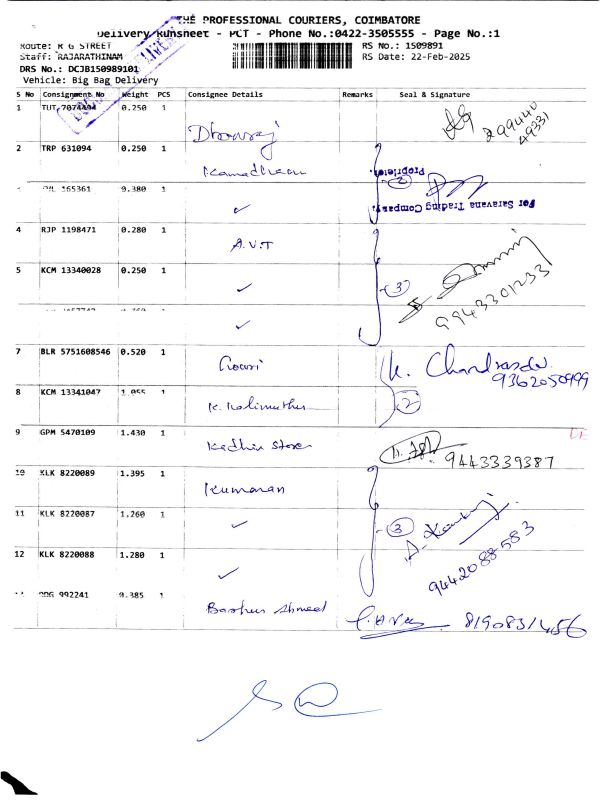 THE PROFESSIONAL COURIERS, COIMBATORE
Delivery Runsheet - PCT - Phone No.:0422-3505555 - Page No.:1
Route: R G STREET
RS No.: 1509891
Staff: RAJARATHINAM
RS Date: 22-Feb-2025
DRS No.: DCJB150989101
Vehicle: Big Bag Delivery
S No Consignment No Weight PCS Consignee Details Remarks Seal & Signature
1 TUT 7074494 0.250 1 Dhanraj
2 TRP 631094 0.250 1
165361 0.380 1 ✓
For Saravana Trading Company.
Proprietor.
4 RJP 1198471 0.280 1 A.V.T
5 KCM 13340028 0.250 1 ✓ 3
9943301233
✓
7 BLR 5751608546 0.520 1 Gowri
9362050999
8 KCM 13341047 1.055 1 K. Kalimuthu 2
9 GPM 5470109 1.430 1 Kadhir Store 9443339387
10 KLK 8220089 1.395 1 Kumaran
11 KLK 8220087 1.260 1 ✓ 3
12 KLK 8220088 1.280 1 ✓ 9442088583
992241 0.385 1 8190831456